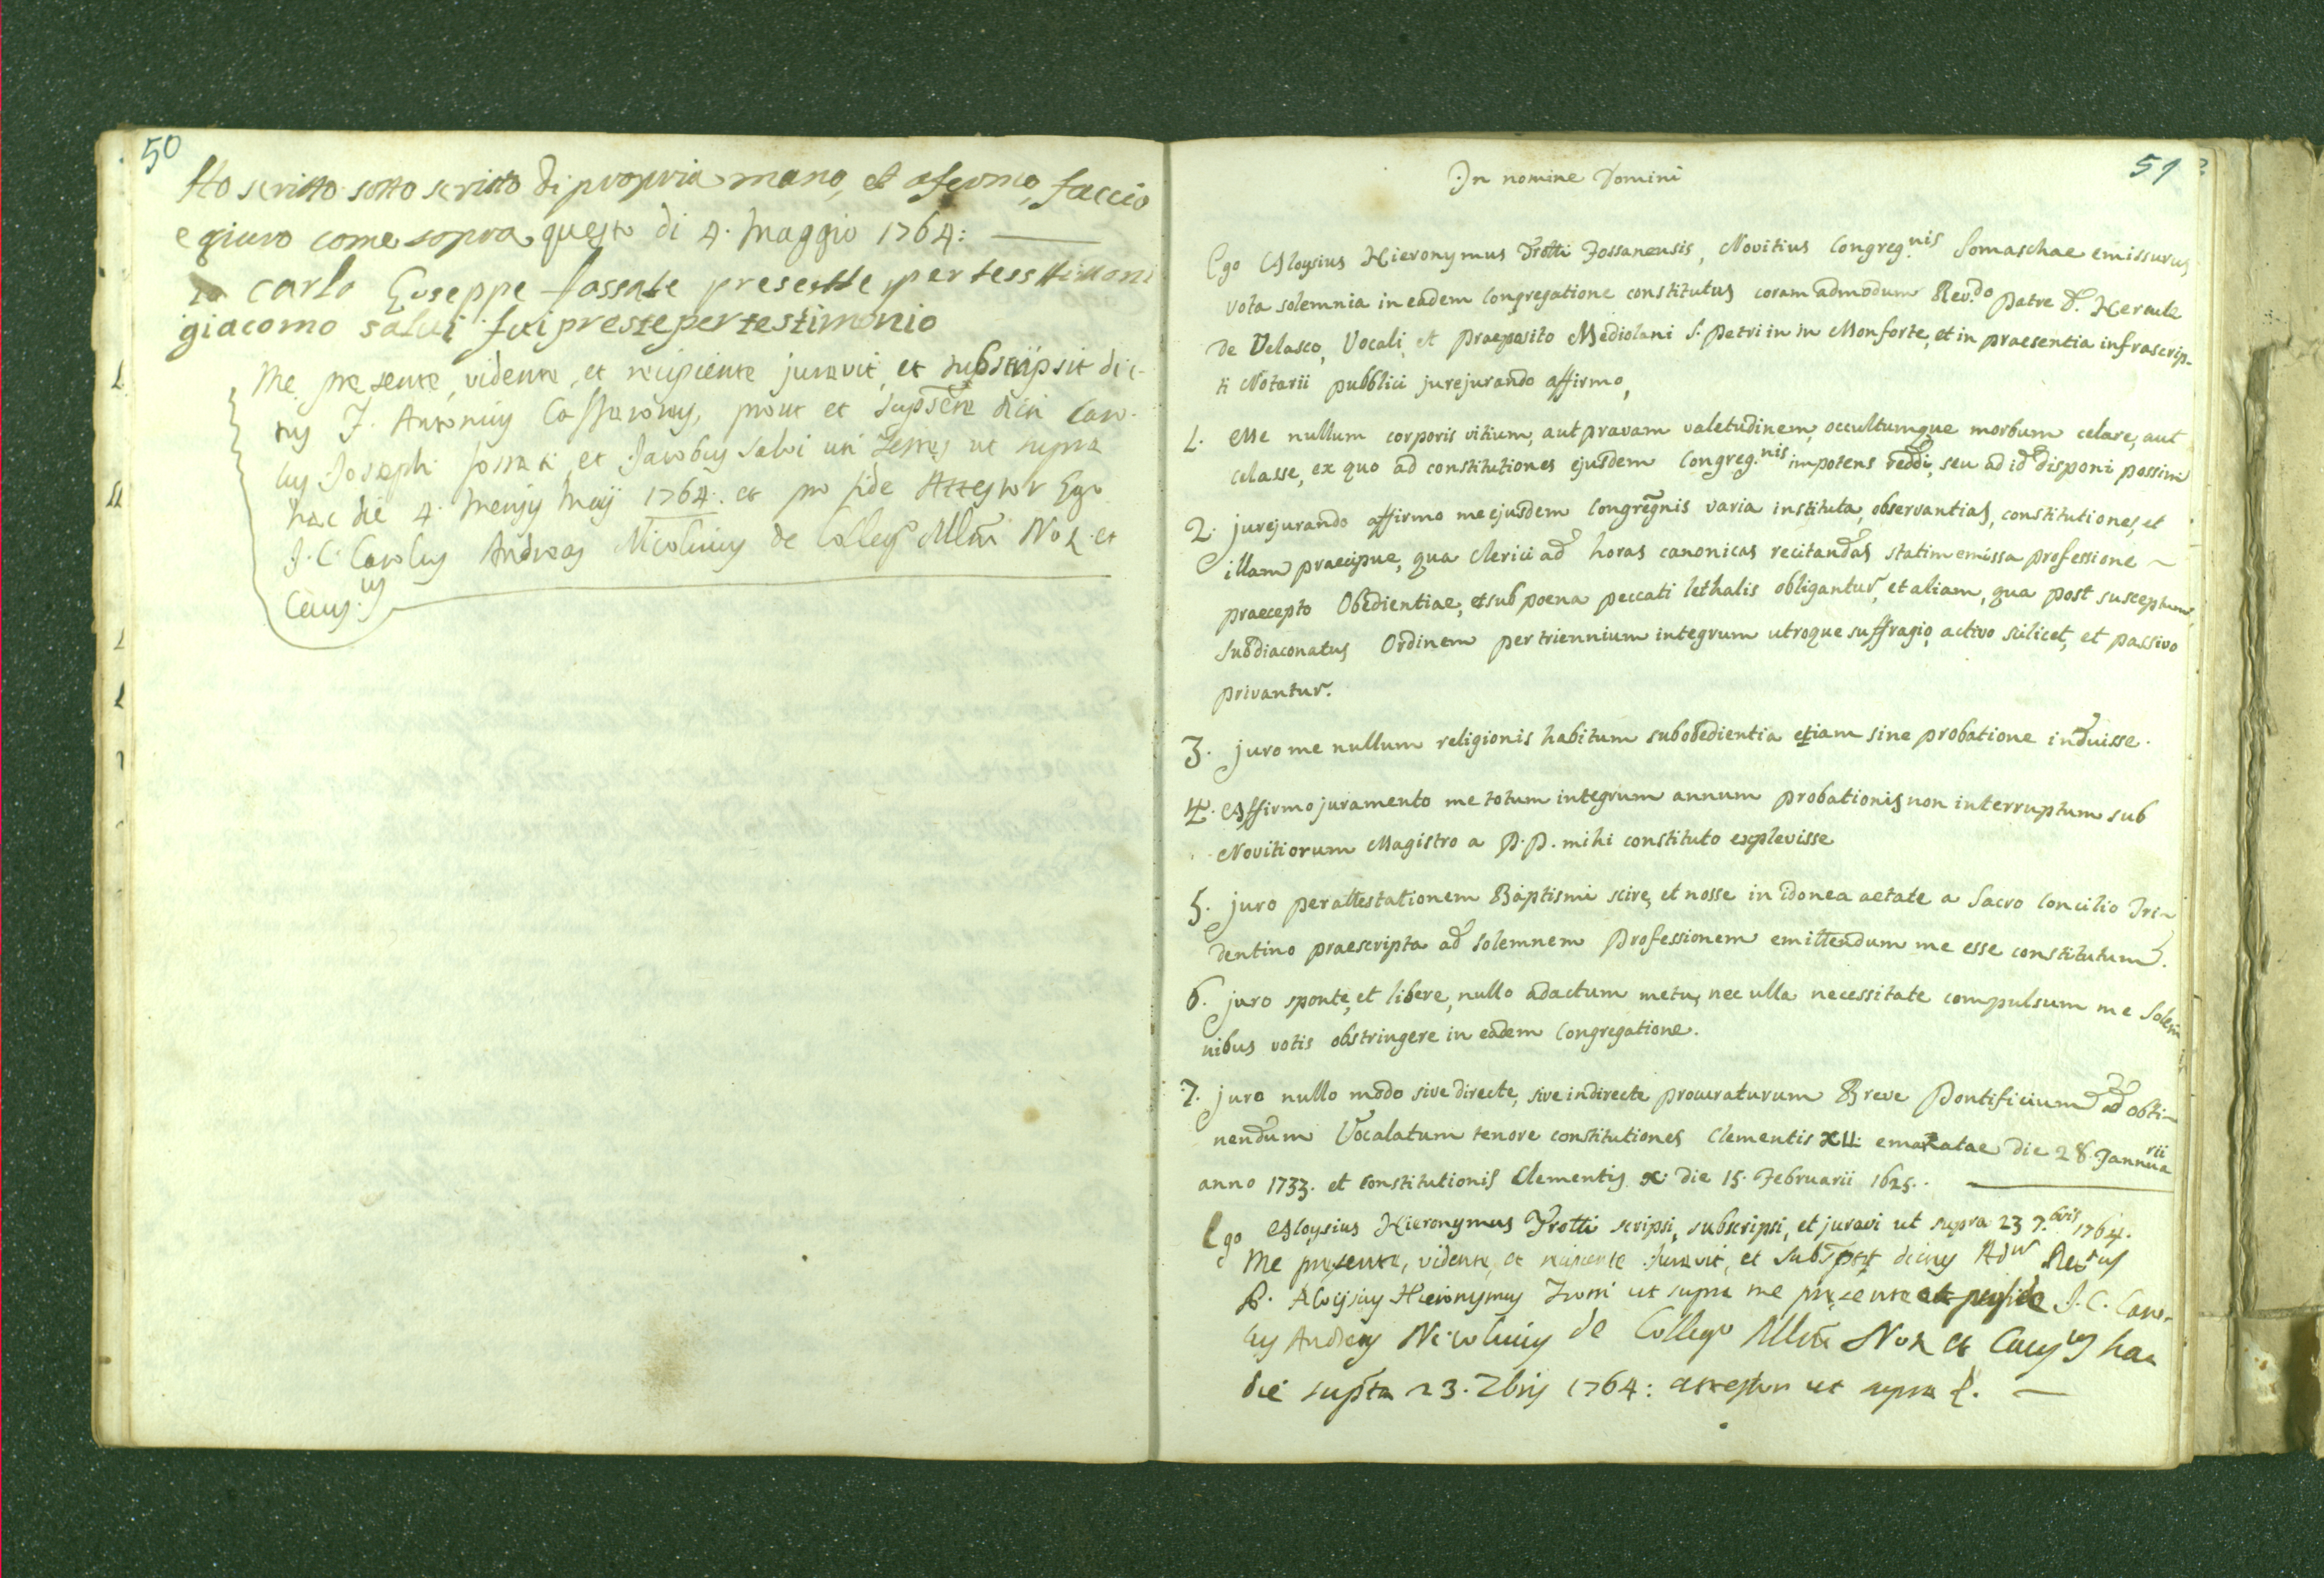 50
Ho scritto sotto scritto di propria mano, et afermo, faccio
e giuro come sopra questo di 4. Maggio 1764:
Io Carlo Guseppe fossate presentte per tess ttimoni
giacomo salui fui preste per testimonio
Me presente, vidente, et recipiente juravit, et subscripsit dic-
tus F. Antonius prout et dicti Caro-
lus Joseph fossati et Jacobus Salvi uti Testes ut supra
hac die 4. Mensis Maij 1764. et pro fide Attestor Ego
J. C. Carolus Andreas Nicolinus de Colleg.o Mlni Not. et
Caus.us
51
In nomine Domini
Ego Aloysius Hieronymus Trotti Fossanensis, Novitius Congreg.nis Somaschae emissurus
vota solemnia in eadem Congregatione constitutus coram admodum Rev.do Patre D. Hercule
de Velasco, Vocali, et Praeposito Mediolani S. Petri in m Monforte, et in praesentia infrascrip-
ti Notarii pubblici jurejurando affirmo,
1. Me nullum corporis vitium, aut pravam valetudinem, occultumque morbum celare, aut
celasse, ex quo ad constitutiones ejusdem Congreg.nis impotens reddi, seu ad id disponi possim
2. jurejurando affirmo me ejusdem Congregnis varia instituta, observantias, constitutiones, et
illam praecipue, qua Clerici ad horas canonicas recitandas statim emissa professione ~
praecepto Obedientiae, et sub poena peccati lethalis obligantur, et aliam, qua post susceptum
Subdiaconatus Ordinem per triennium integrum utroque suffragio, activo scilicet, et passivo
privantur.
3. juro me nullum religionis habitum sub obedientia etiam sine probatione induisse.
4. Affirmo juramento me totum integrum annum probationis non interruptum sub
Novitiorum Magistro a P.P. mihi constituto explevisse
5. juro per attestationem Baptismi scire, et nosse in idonea aetate a Sacro Concilio Tri~
dentino praescripta ad solemnem Professionem emittendum me esse constitutum.
6. juro sponte, et libere, nullo adactum metu, nec ulla necessitate compulsum me Solem
nibus votis obstringere in eadem Congregatione.
7. juro nullo modo sive directe, sive indirecte procuraturum Breve Pontificium ad obti~
nendum Vocalatum tenore constitutiones Clementis XII. emanatae die 28. Jannuarii
anno 1733. et constitutionis Clementis X. die 15. Februarii 1625.
Ego Aloysius Hieronymus Trotti scripsi, subscripsi, et juravi ut supra 23 7.bris 1764.
Me presente, vidente, et recipiente Juravit, et dictus
P. Aloijsius Hieronymus Trotti ut supra me presente J. C. Caro-
lus Andreas Nicolinus de Collego Mlni Not. et Caus.us hac
die supta 23. 7bris 1764: attestor ut supra